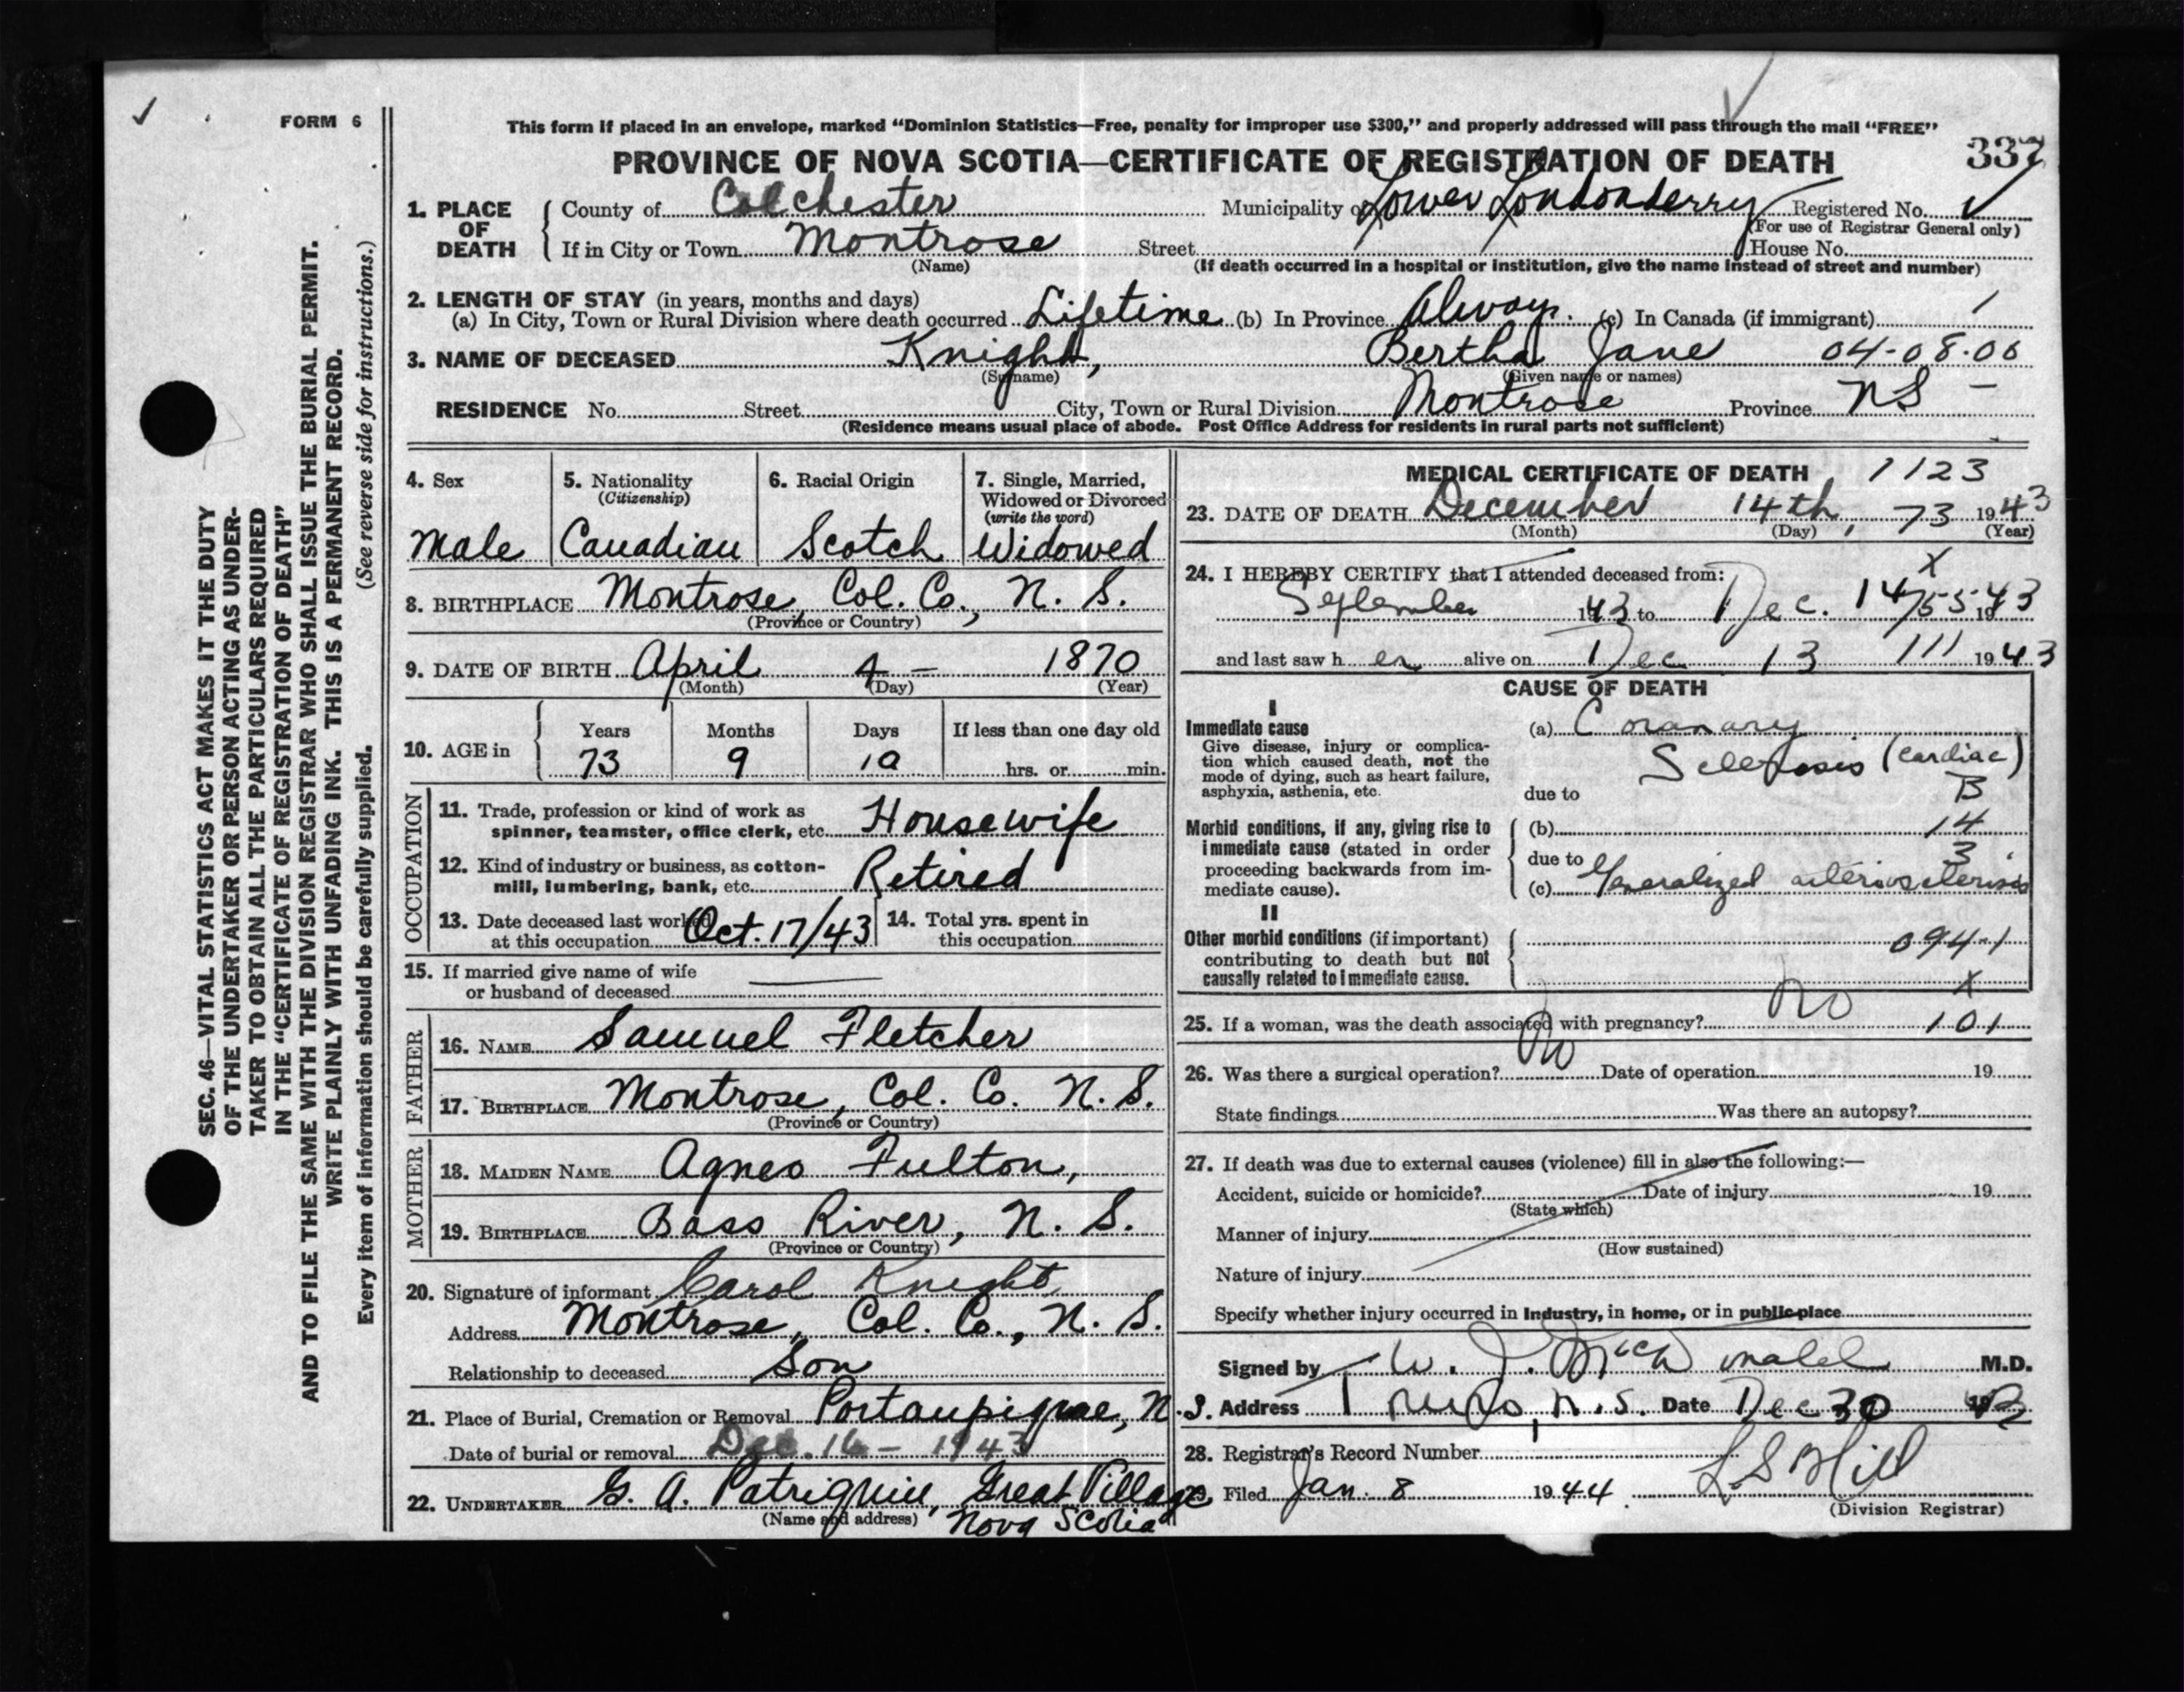 FORM 6
SEC. 46—VITAL STATISTICS ACT MAKES IT THE DUTY
OF THE UNDERTAKER OR PERSON ACTING AS UNDER-
TAKER TO OBTAIN ALL THE PARTICULARS REQUIRED
IN THE "CERTIFICATE OF REGISTRATION OF DEATH"
AND TO FILE THE SAME WITH THE DIVISION REGISTRAR WHO SHALL ISSUE THE BURIAL PERMIT.
WRITE PLAINLY WITH UNFADING INK. THIS IS A PERMANENT RECORD.
Every item of information should be carefully supplied. (See reverse side for instructions.)
This form if placed in an envelope, marked "Dominion Statistics—Free, penalty for improper use $300," and properly addressed will pass through the mail "FREE"
PROVINCE OF NOVA SCOTIA—CERTIFICATE OF REGISTRATION OF DEATH 337
1. PLACE OF DEATH County of Colchester Municipality of Lower Londonderry Registered No.
(For use of Registrar General only)
If in City or Town Montrose Street House No.
(Name) (If death occurred in a hospital or institution, give the name instead of street and number)
2. LENGTH OF STAY (in years, months and days)
(a) In City, Town or Rural Division where death occurred Lifetime (b) In Province Always. (c) In Canada (if immigrant)
3. NAME OF DECEASED Knight, Bertha Jane 04-08-06
(Surname) (Given name or names)
RESIDENCE No. Street City, Town or Rural Division Montrose Province NS —
(Residence means usual place of abode. Post Office Address for residents in rural parts not sufficient)
4. Sex
Male
5. Nationality
(Citizenship)
Canadian
6. Racial Origin
Scotch
7. Single, Married,
Widowed or Divorced
(write the word)
Widowed
8. BIRTHPLACE Montrose, Col. Co., N. S.
(Province or Country)
9. DATE OF BIRTH April 4 — 1870
(Month) (Day) (Year)
10. AGE in Years Months Days If less than one day old
73 9 10 hrs. or min.
OCCUPATION
11. Trade, profession or kind of work as
spinner, teamster, office clerk, etc. Housewife
12. Kind of industry or business, as cotton-
mill, lumbering, bank, etc. Retired
13. Date deceased last worked
at this occupation Oct. 17/43
14. Total yrs. spent in
this occupation
15. If married give name of wife
or husband of deceased —
FATHER
16. NAME Samuel Fletcher
17. BIRTHPLACE Montrose, Col. Co. N. S.
(Province or Country)
MOTHER
18. MAIDEN NAME Agnes Fulton,
19. BIRTHPLACE Bass River, N. S.
(Province or Country)
20. Signature of informant Carol Knight
Address Montrose, Col. Co., N. S.
Relationship to deceased Son
21. Place of Burial, Cremation or Removal Portaupique, N.S.
Date of burial or removal Dec. 16 - 1943
22. UNDERTAKER G. A. Patriquin, Great Village
(Name and address) Nova Scotia
MEDICAL CERTIFICATE OF DEATH 1123
23. DATE OF DEATH December 14th, 73 1943
(Month) (Day) (Year)
24. I HEREBY CERTIFY that I attended deceased from: X
September 1943 to Dec. 14 55 1943
and last saw h er alive on Dec 13 111 1943
CAUSE OF DEATH
I
Immediate cause
Give disease, injury or complica-
tion which caused death, not the
mode of dying, such as heart failure,
asphyxia, asthenia, etc.
(a) Coranary
Sclerosis (cardiac)
due to B
Morbid conditions, if any, giving rise to
immediate cause (stated in order
proceeding backwards from im-
mediate cause).
(b) 14
due to 3
(c) Generalized arteriosclerosis
II
Other morbid conditions (if important)
contributing to death but not
causally related to immediate cause.
094-1
X
25. If a woman, was the death associated with pregnancy? No 101
26. Was there a surgical operation? No Date of operation 19
State findings Was there an autopsy?
27. If death was due to external causes (violence) fill in also the following:—
Accident, suicide or homicide? Date of injury 19
(State which)
Manner of injury
(How sustained)
Nature of injury
Specify whether injury occurred in Industry, in home, or in public place
Signed by W. J. M.D.
Address Truro, N.S. Date Dec 30 1943
28. Registrar's Record Number
29. Filed Jan. 8 1944 L S Hill
(Division Registrar)